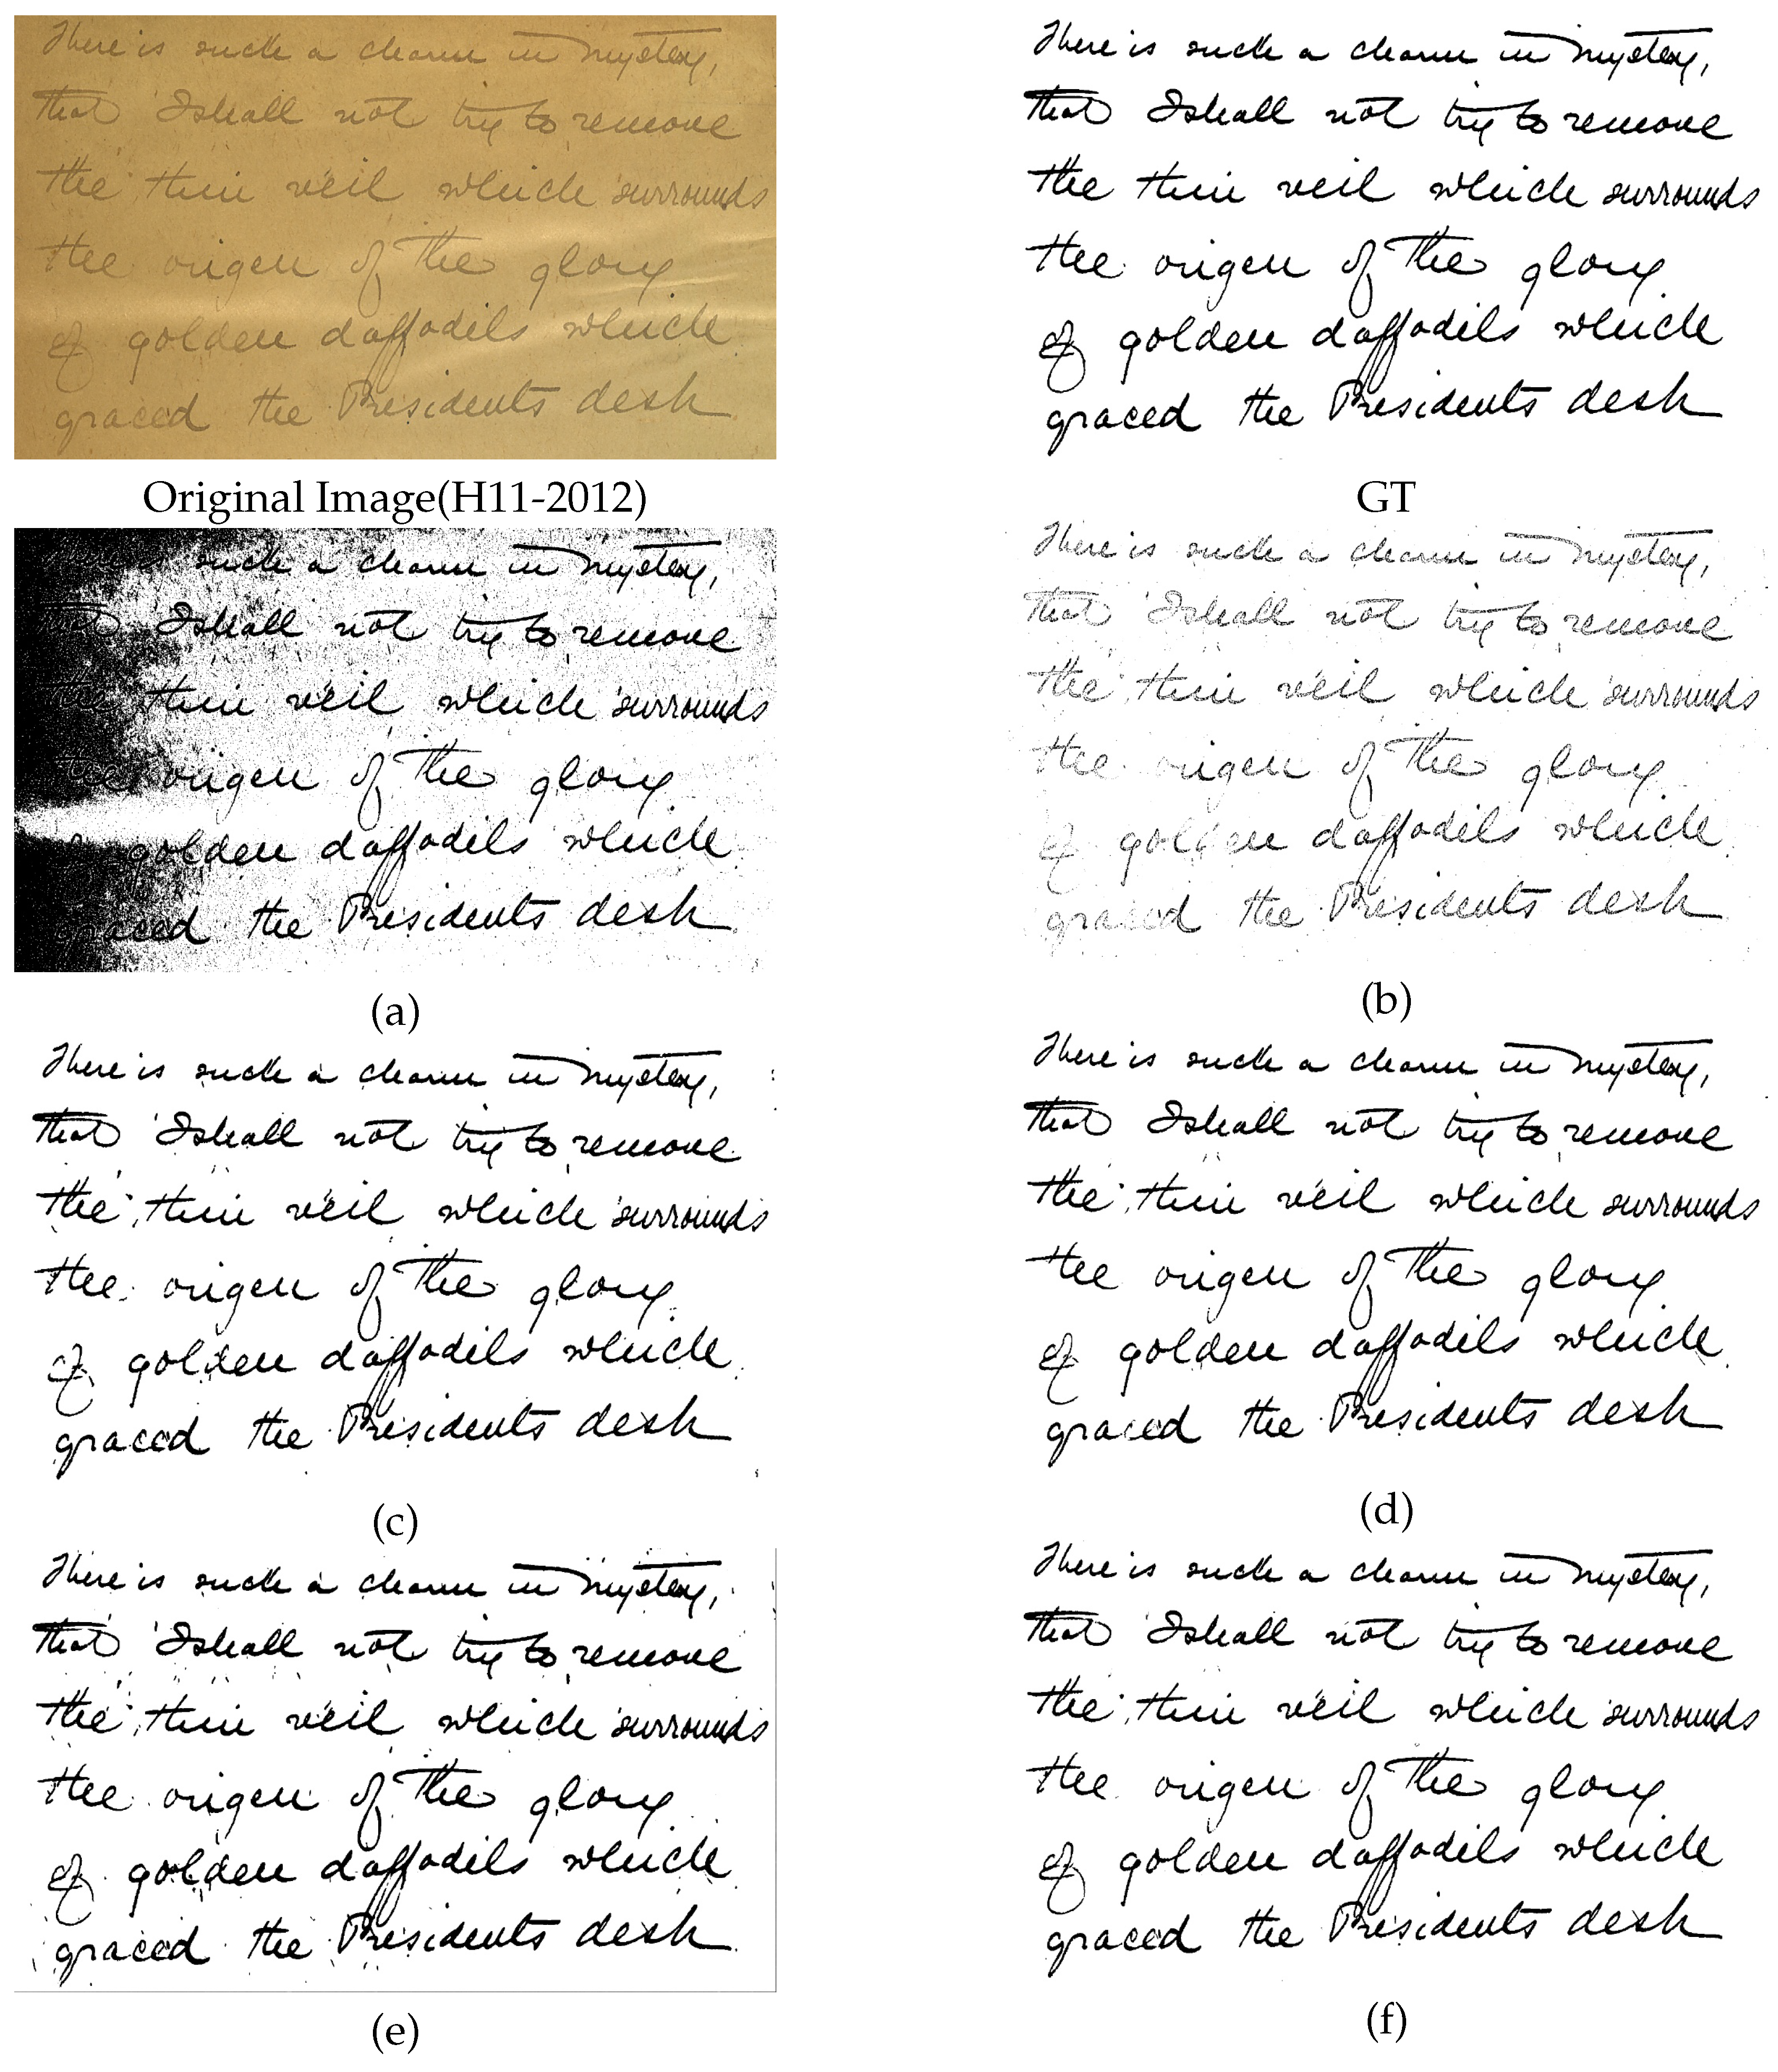 There is such a charm in mystery,
that I shall not try to remove
the thin veil which surrounds
the origin of the glory
of golden daffodils which
graced the Presidents desk
Original Image(H11-2012)
There is such a charm in mystery,
that I shall not try to remove
the thin veil which surrounds
the origin of the glory
of golden daffodils which
graced the Presidents desk
GT
such a charm in mystery,
that I shall not try to remove
thin veil which surrounds
the origin of the glory
golden daffodils which
graced the Presidents desk
(a)
There is such a charm in mystery,
that I shall not try to remove
the thin veil which surrounds
the origin of the glory
of golden daffodils which
graced the Presidents desk
(b)
There is such a charm in mystery,
that I shall not try to remove
the thin veil which surrounds
the origin of the glory
of golden daffodils which
graced the Presidents desk
(c)
There is such a charm in mystery,
that I shall not try to remove
the thin veil which surrounds
the origin of the glory
of golden daffodils which
graced the Presidents desk
(d)
There is such a charm in mystery,
that I shall not try to remove
the thin veil which surrounds
the origin of the glory
of golden daffodils which
graced the Presidents desk
(e)
There is such a charm in mystery,
that I shall not try to remove
the thin veil which surrounds
the origin of the glory
of golden daffodils which
graced the Presidents desk
(f)